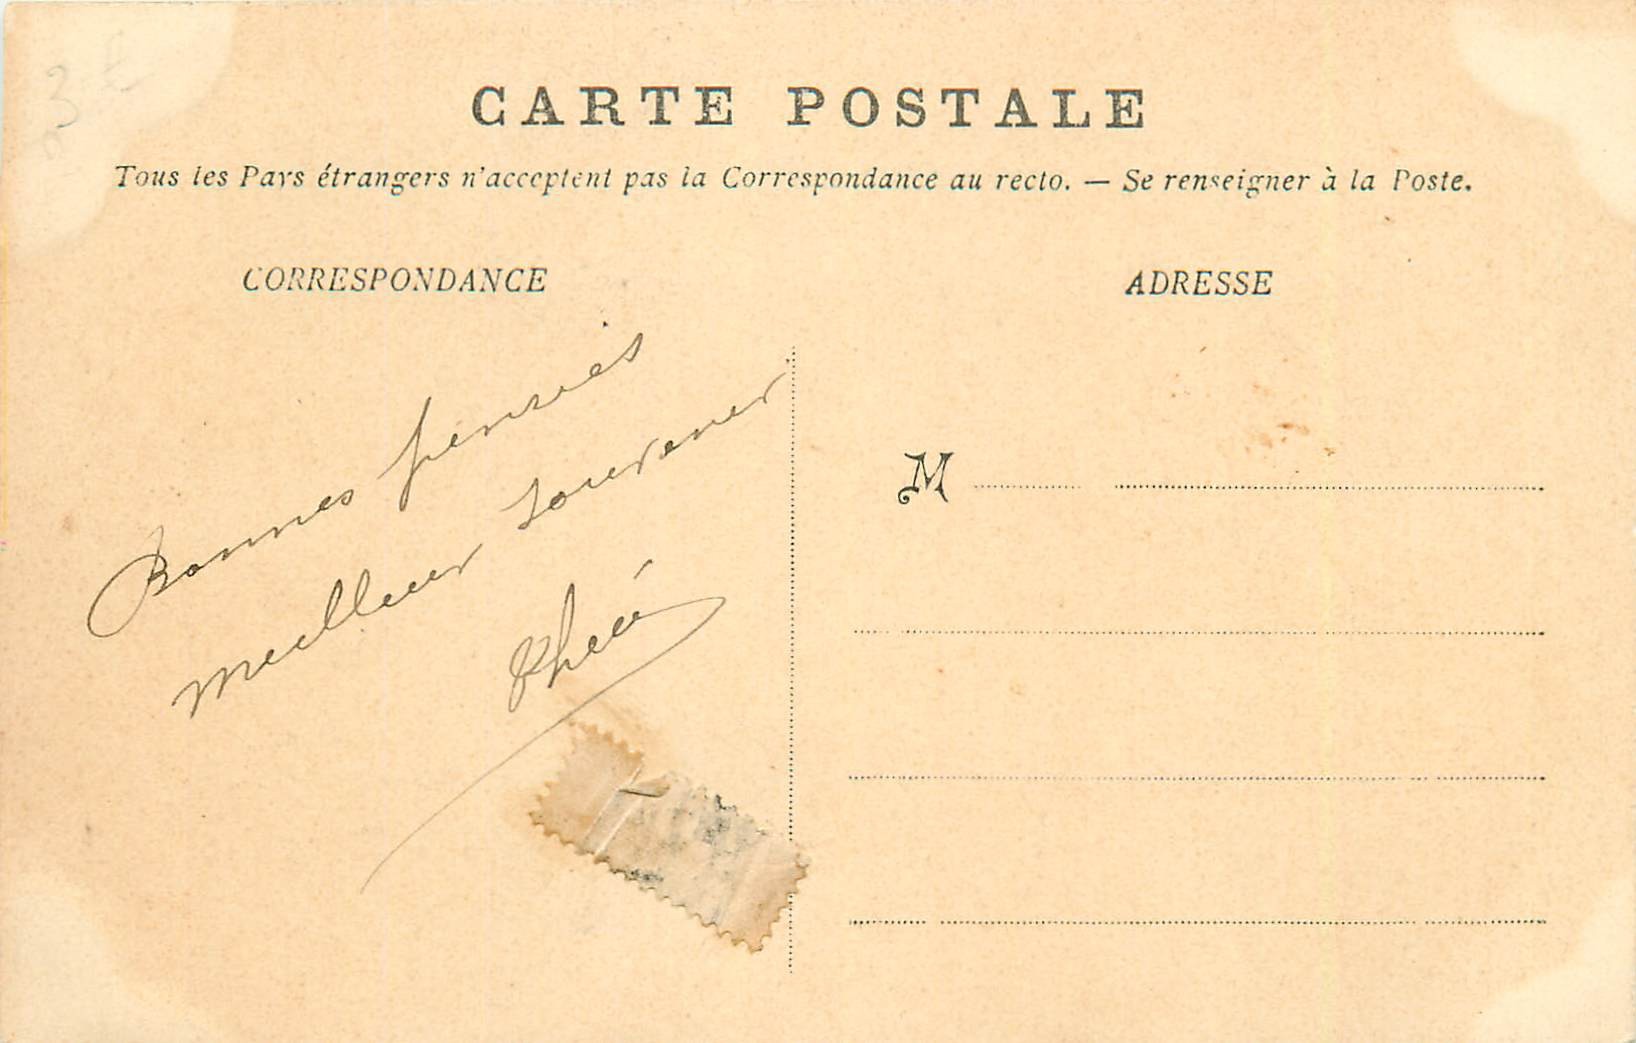 3 €
CARTE POSTALE
Tous les Pays étrangers n'acceptent pas la Correspondance au recto. — Se renseigner à la Poste.
CORRESPONDANCE
Bonnes pensées
meilleur souvenir
ADRESSE
M